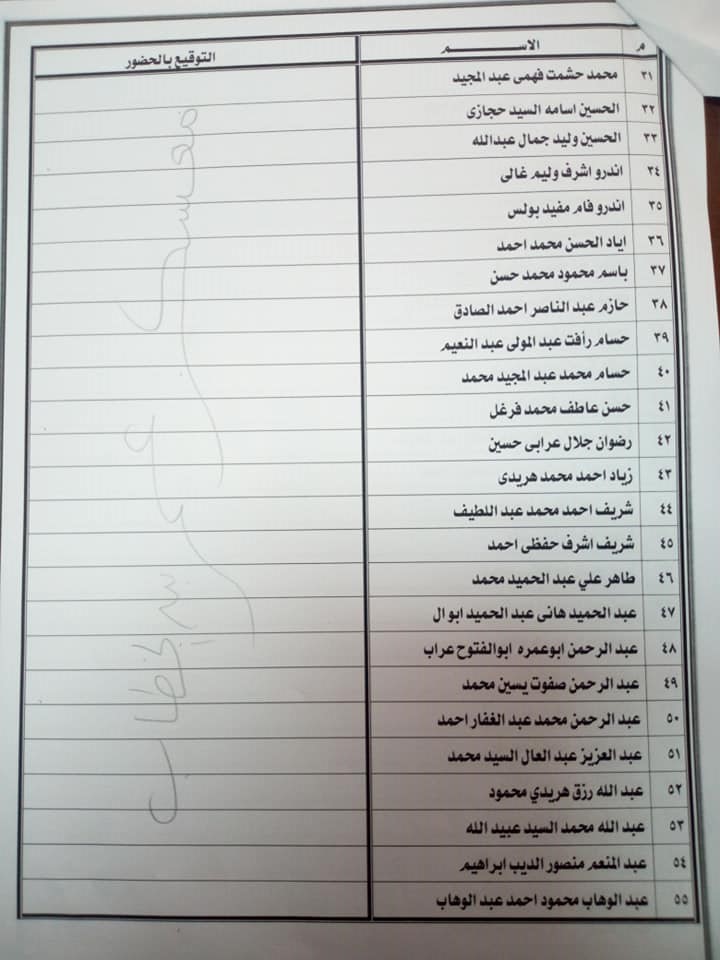 م الاســـــــم التوقيع بالحضور
٣١ محمد حشمت فهمى عبد المجيد
٣٢ الحسين اسامه السيد حجازى
٣٣ الحسين وليد جمال عبدالله
٣٤ اندرو اشرف وليم غالى
٣٥ اندرو فام مفيد بولس
٣٦ اياد الحسن محمد احمد
٣٧ باسم محمود محمد حسن
٣٨ حازم عبد الناصر احمد الصادق
٣٩ حسام رأفت عبد المولى عبد النعيم
٤٠ حسام محمد عبد المجيد محمد
٤١ حسن عاطف محمد فرغل
٤٢ رضوان جلال عرابى حسين
٤٣ زياد احمد محمد هريدى
٤٤ شريف احمد محمد عبد اللطيف
٤٥ شريف اشرف حفظى احمد
٤٦ طاهر علي عبد الحميد محمد
٤٧ عبد الحميد هانى عبد الحميد ابو ال
٤٨ عبد الرحمن ابوعمره ابوالفتوح عراب
٤٩ عبد الرحمن صفوت يسين محمد
٥٠ عبد الرحمن محمد عبد الغفار احمد
٥١ عبد العزيز عبد العال السيد محمد
٥٢ عبد الله رزق هريدي محمود
٥٣ عبد الله محمد السيد عبيد الله
٥٤ عبد المنعم منصور الديب ابراهيم
٥٥ عبد الوهاب محمود احمد عبد الوهاب